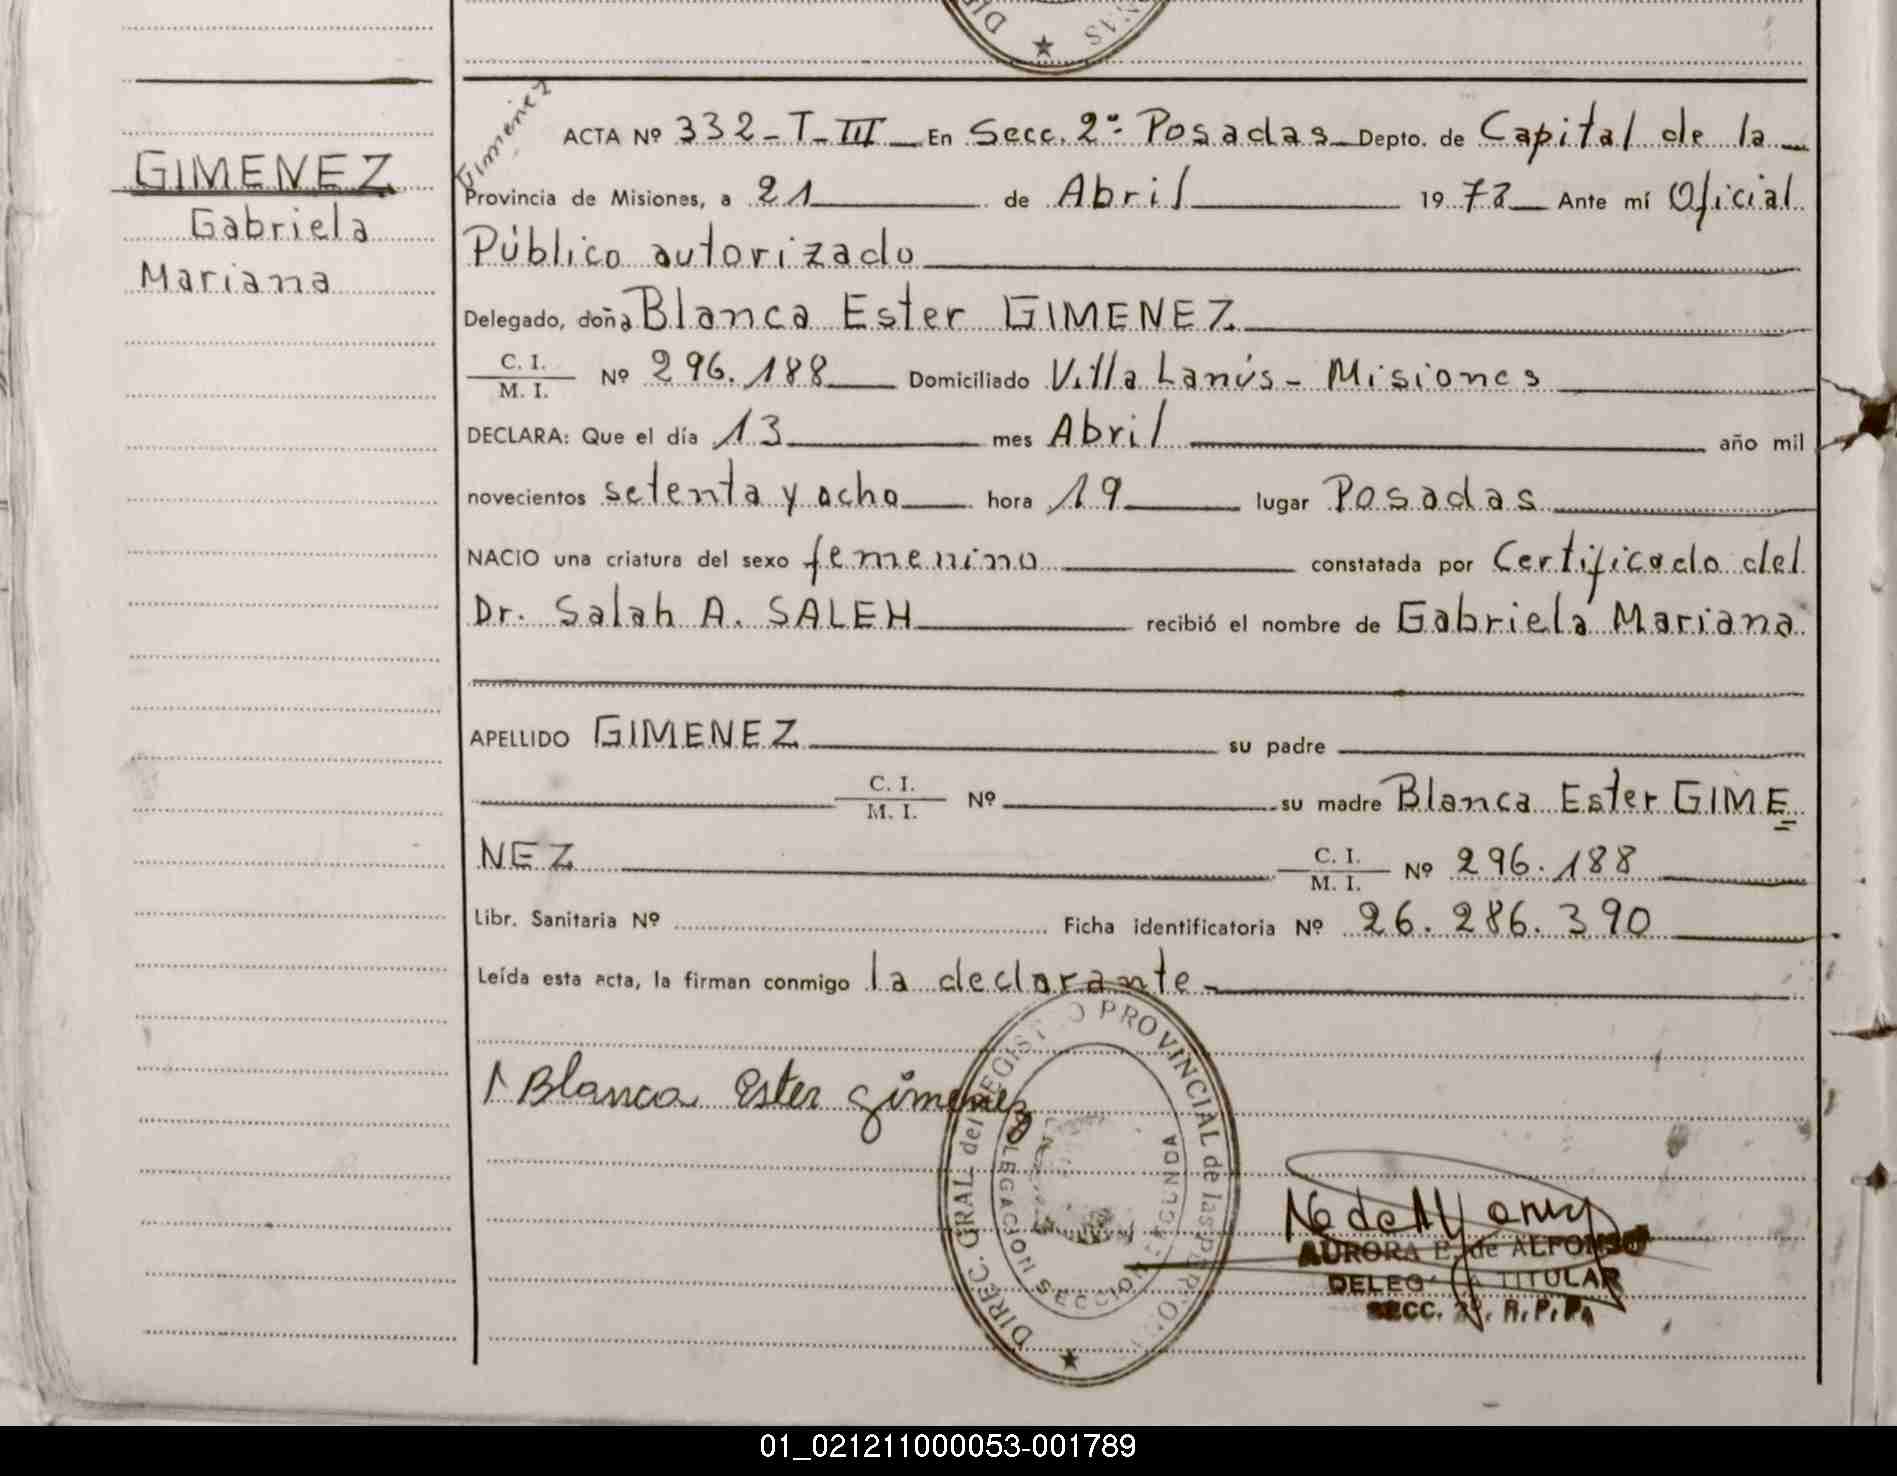 DI NAS
GIMENEZ
Gabriela
Mariana
Gimenez
ACTA Nº 332-T-III En Secc. 2º Posadas Depto. de Capital de la
Provincia de Misiones, a 21 de Abril 1978 Ante mí Oficial
Público autorizado
Delegado, doña Blanca Ester GIMENEZ
C. I. / M. I. Nº 296.188 Domiciliado Villa Lanús - Misiones
DECLARA: Que el día 13 mes Abril año mil
novecientos setenta y ocho hora 19 lugar Posadas
NACIO una criatura del sexo femenino constatada por Certificado del
Dr. Salah A. SALEH recibió el nombre de Gabriela Mariana
APELLIDO GIMENEZ su padre
C. I. / M. I. Nº su madre Blanca Ester GIME
NEZ C. I. / M. I. Nº 296.188
Libr. Sanitaria Nº Ficha identificatoria Nº 26.286.390
Leída esta acta, la firman conmigo la declarante
Blanca Ester Gimenez
DIREC. GRAL. del REGISTRO PROVINCIAL de las PERSONAS
DELEGACION SECCION SEGUNDA
AURORA E. de ALFONSO
DELEGADA TITULAR
SECC. 2ª. R.P.P.
01_021211000053-001789